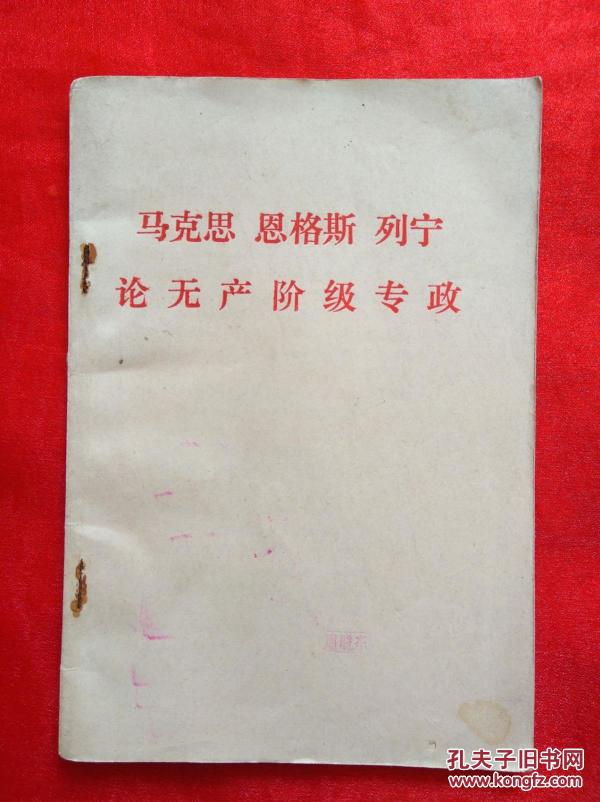 马克思 恩格斯 列宁
论无产阶级专政
孔夫子旧书网
www.kongfz.com